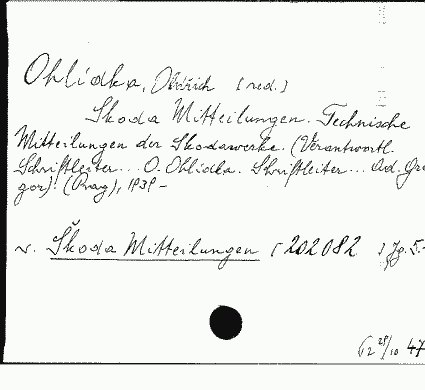 Ohlídka, Oldřich (red.)
Škoda Mitteilungen. Technische
Mitteilungen der Skodawerke. (Verantwortl.
Schriftleiter... O. Ohlídka. Schriftleiter... Ad. Gre
gor). (Prag), 1939-
v. Škoda Mitteilungen [202082 ] Jg. 5.-
28/10 47